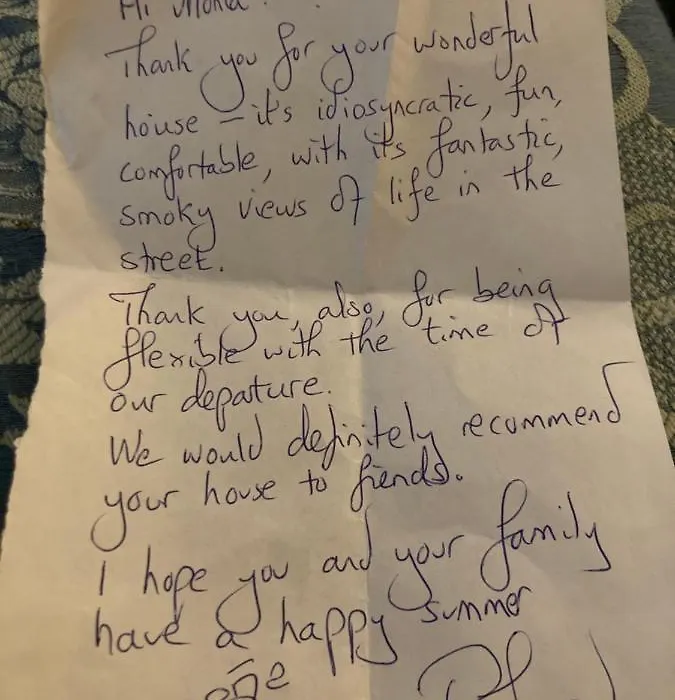 Hi
Thank you for your wonderful
house – it's idiosyncratic, fun,
comfortable, with its fantastic,
smoky views of life in the
street.
Thank you, also, for being
flexible with the time of
our depature.
We would definitely recommend
your house to fiends.
I hope you and your family
have a happy summer